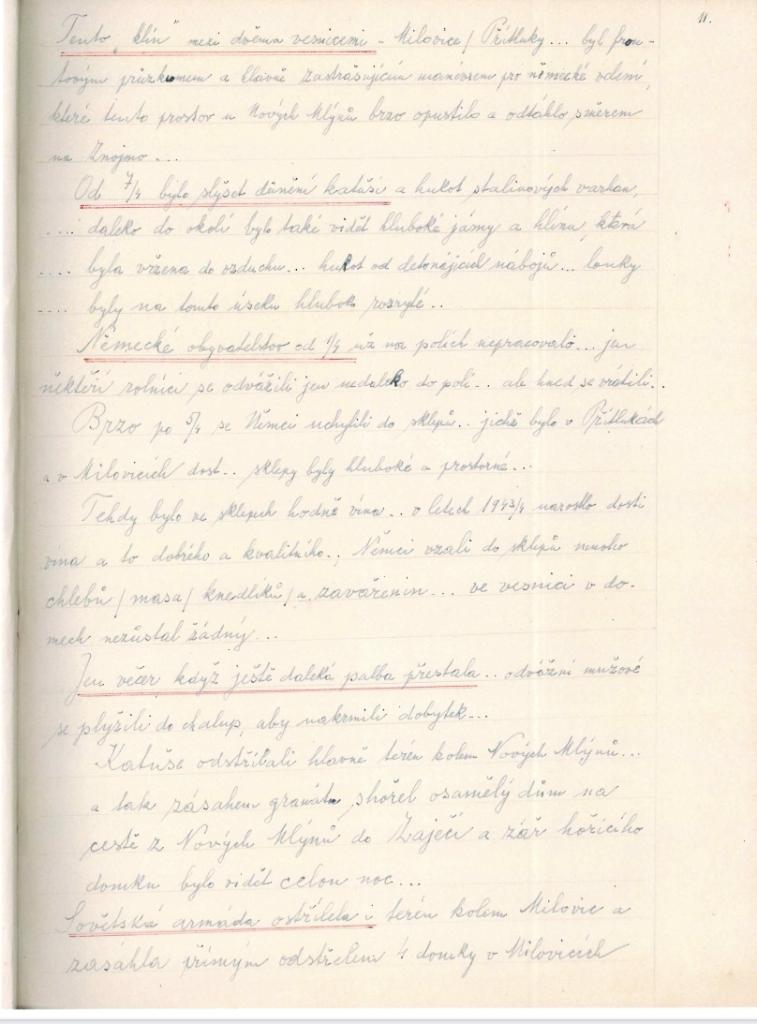 11.
Tento „klín" mezi dvěma vesnicemi - Milovice/Přítluky... byl fron-
tovým průzkumem a hlavně zastrašujícím manévrem pro německé velení,
které tento prostor u Nových Mlýnů brzo opustilo a odtáhlo směrem
na Znojmo...
Od 7/4 bylo slyšet dunění katuší a hukot stalinových varhan,
.... daleko do okolí bylo také vidět hluboké jámy a hlínu, která
.... byla vržena do vzduchu... hukot od detonujících nábojů... louky
.... byly na tomto úseku hluboko rozryté..
Německé obyvatelstvo od 1/4 už na polích nepracovalo... jen
někteří rolníci se odvážili jen nedaleko do polí... ale hned se vrátili..
Brzo po 5/4 se Němci uchýlili do sklepů.. jichž bylo v Přítlukách
a v Milovicích dost.. sklepy byly hluboké a prostorné...
Tehdy bylo ve sklepích hodně vína.. v letech 1943/4 narostlo dosti
vína a to dobrého a kvalitního.. Němci vzali do sklepů mnoho
chlebů/masa/knedlíků/a zavařenin... ve vesnici v do-
mech nezůstal žádný...
Jen večer když ještě daleká palba přestala.. odvážní mužové
se plýžili do chalup, aby nakrmili dobytek...
Katuše odstříleli hlavně terén kolem Nových Mlýnů...
a tak zásahem granátu shořel osamělý dům na
cestě z Nových Mlýnů do Zaječí a zář hořícího
domku bylo vidět celou noc...
Sovětská armáda ostřílela i terén kolem Milovic a
zasáhla přímým odstřelem 4 domky v Milovicích